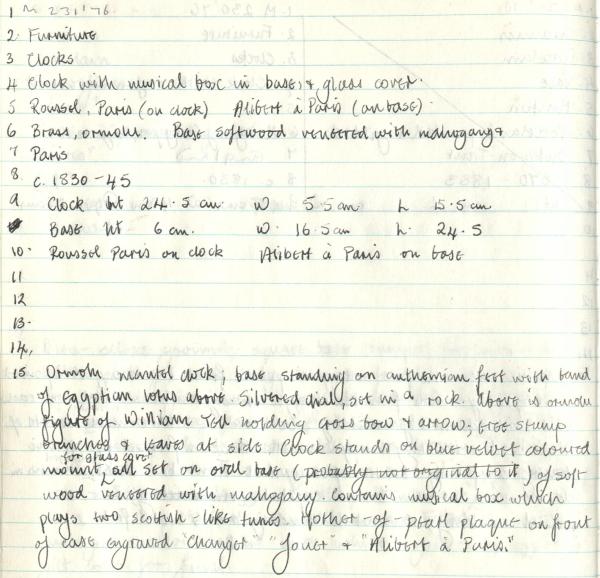 1 M 231'76
2. Furniture
3 Clocks
4 Clock with musical box in base, & glass cover.
5 Roussel, Paris (on clock) Alibert à Paris (on base).
6 Brass, ormolu. Base softwood veneered with mahogany
7 Paris
8. c. 1830-45
9 Clock ht 24.5 cm. W 5.5cm L 15.5cm
Base ht 6cm. W. 16.5cm L. 24.5
10. Roussel Paris on clock Alibert à Paris on base
11
12
13.
14,
15 Ormolu mantel clock; base standing on anthemion feet with band
of Egyptian lotus above. Silvered dial, set in a rock. Above is ormolu
figure of William Tell holding cross bow & arrow; tree stump
branches & leaves at side Clock stands on blue velvet coloured
for glass cover
mount, all set on oval base (probably not original to it) of soft
wood veneered with mahogany. Contains musical box which
plays two scottish-like tunes Mother-of-pearl plaque on front
of case engraved "Changer" "Jouer" & "Alibert à Paris."